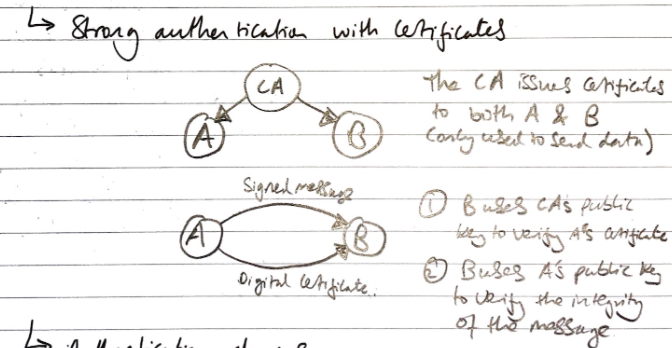 ↳ Strong authentication with certificates
CA
A
B
The CA issues certificates
to both A & B
(only used to send data)
Signed message
A
B
Digital Certificate.
① B uses CA's public
key to verify A's certificate
② B uses A's public key
to verify the integrity
of the message
↳ Authentication